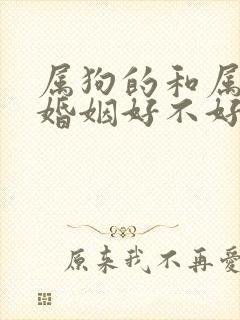 属狗的和属
婚姻好不好
原来我不再爱